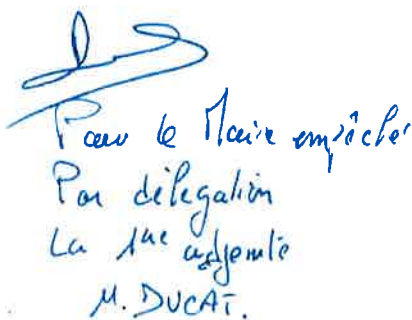 Pour le Maire empêché
Par délégation
La 1ère adjointe
M. DUCAT.